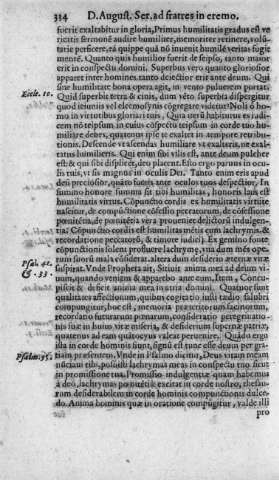 314 D. August. Ser. ad fratres in eremo.
fuerit exaltabitur in gloria, Primus humilitatis gradus est ve
ritatis sermonē audire humiliter, memoriter retinere, volū
tarie perficere, nā quippe quā nō inuenit humilē veritas fugit
mentē. Quanto quis humilior fuerit de seipso, tanto maior
erit in conspectu domini. Superbus vero quanto gloriosior
apparet inter homines tanto deiectior erit ante deum. Qui
Eccle. 10. sine humilitate bona opera agit, in vento puluerem portat.
Quid superbit terra & cinis, dum vēto superbiæ dispergitur
quod ieiuniis vel eleemosynis cōgregare videtur? Noli ô ho
mo in virtutibus gloriari tuis,
dem nō teipsum in cuius cōspectu teipsum in corde tuo hu
miliare debes, quatenus ipse te exaltet in tempore retribu-
tionis. Descende vt ascendas humiliare vt exalteris, ne exal-
tatus humilieris. Qui enim sibi vilis est, ante deum pulcher
est: & qui sibi displicet, deo placet. Esto ergo paruus in ocu-
lis tuis, vt sis magnus in oculis Dei. Tanto enim eris apud
deū preciosior, quāto fueris ante oculos tuos despectior, In
summo honore summa sit tibi humilitas, honoris laus est
humilitatis virtus. Cōpunctio cordis ex humilitatis virtute
nascitur, de compunctione cōfessio peccatorum, de cōfessione
pœnitētia, de pœnitētia vera prouenit delictorū indulgen-
tia: Cōpunctio cordis est humilitas mētis cum lachrymis, &
recordatione peccatorū, & timore iudicij. Ex gemino fonte
cōpunctionis solent profluere lachrymę, vna dum mēs ope-
Psal. 41. rum suorū mala cōsiderat, altera dum desiderio æternæ vitæ
& 33. suspirat. Vnde Propheta ait, Sitiuit anima mea ad deum vi-
uum, quando veniam & apparebo ante eum, Item, Concu-
piscit & deficit anima mea in atria domini. Quatuor sunt
qualitates affectionum, quibus cogitatio iusti tædio salubri
compungitur, hoc est, memoria præteritorum facinorum,
recordatio futurarum pœnarum, consideratio peregrinatio-
nis suæ in huius vitæ miseria, & desiderium supernæ patriæ,
quatenus ad eam quātocyus valeat peruenire. Quādo ergo
ista in corde hominis fiunt, signū est tunc esse deum per gra-
Psalm. 55. tiam præsentem. Vnde in Psalmo dicitur, Deus vitam meam
nunciaui tibi, posuisti lachrymas meas in conspectu tuo sicut
in promissione tua. Promissio indulgentiæ quam habemus
à deo, lachrymas pœnitētiæ excitat in corde nostro, thesau-
rum desiderabilem in corde hominis compunctionis dulce-
do. Anima hominis quæ in oratione compūgitur, valde illi
pro